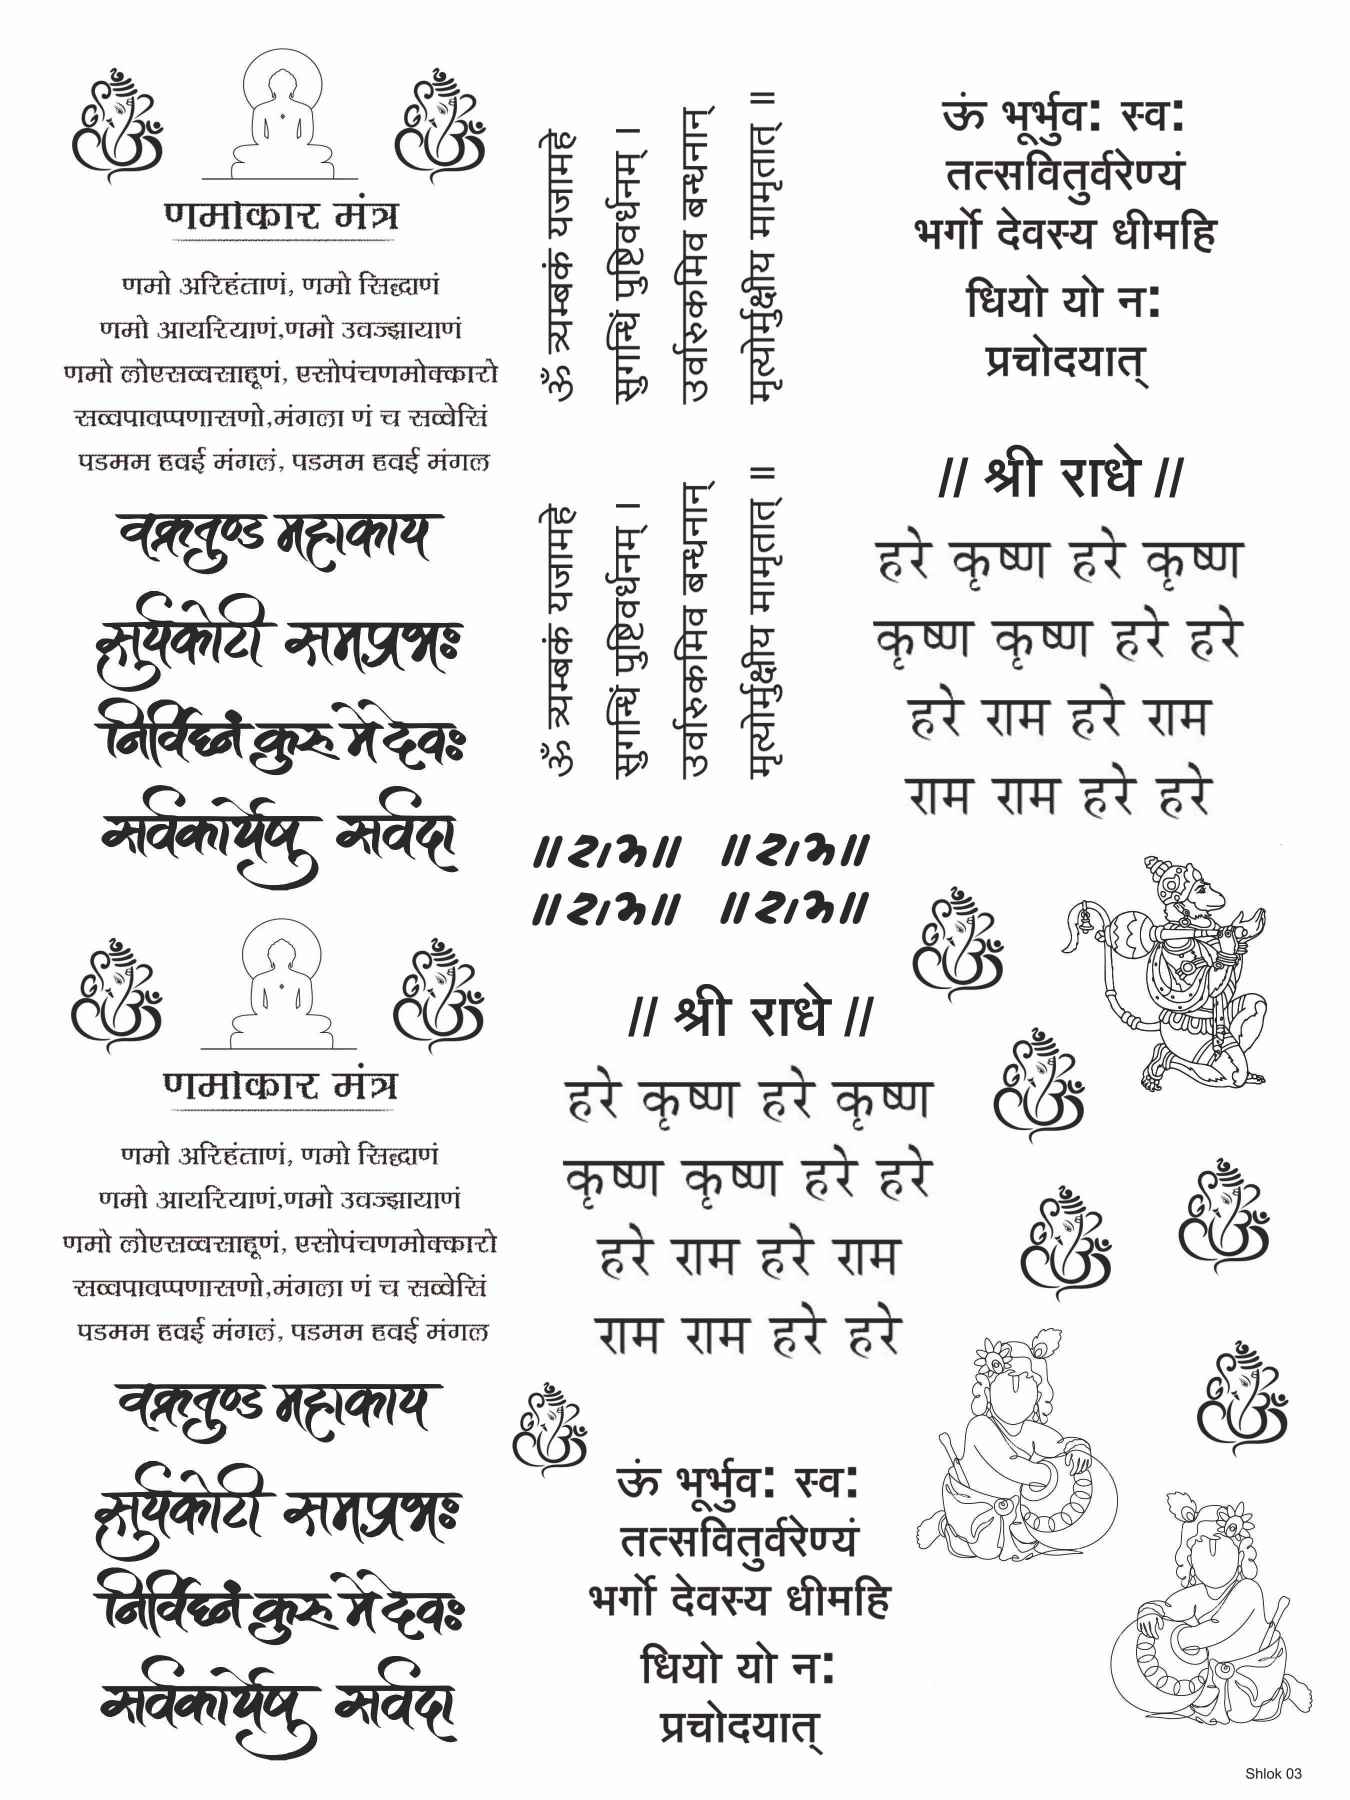 णमोकार मंत्र
णमो अरिहंताणं, णमो सिद्धाणं
णमो आयरियाणं,णमो उवज्झायाणं
णमो लोएसव्वसाहूणं, एसोपंचणमोक्कारो
सव्वपावप्पणासणो,मंगला णं च सव्वेसिं
पडमम हवई मंगलं, पडमम हवई मंगल
वक्रतुण्ड महाकाय
सुर्यकोटी समप्रभः
निर्विघ्नं कुरु मे देवः
सर्वकार्येषु सर्वदा
ॐ त्र्यम्बकं यजामहे
सुगन्धिं पुष्टिवर्धनम् ।
उर्वारुकमिव बन्धनान्
मृत्योर्मुक्षीय मामृतात् ॥
ऊं भूर्भुव: स्व:
तत्सवितुर्वरेण्यं
भर्गो देवस्य धीमहि
धियो यो न:
प्रचोदयात्
ॐ त्र्यम्बकं यजामहे
सुगन्धिं पुष्टिवर्धनम् ।
उर्वारुकमिव बन्धनान्
मृत्योर्मुक्षीय मामृतात् ॥
// श्री राधे //
हरे कृष्ण हरे कृष्ण
कृष्ण कृष्ण हरे हरे
हरे राम हरे राम
राम राम हरे हरे
॥राम॥ ॥राम॥
॥राम॥ ॥राम॥
णमोकार मंत्र
णमो अरिहंताणं, णमो सिद्धाणं
णमो आयरियाणं,णमो उवज्झायाणं
णमो लोएसव्वसाहूणं, एसोपंचणमोक्कारो
सव्वपावप्पणासणो,मंगला णं च सव्वेसिं
पडमम हवई मंगलं, पडमम हवई मंगल
वक्रतुण्ड महाकाय
सुर्यकोटी समप्रभः
निर्विघ्नं कुरु मे देवः
सर्वकार्येषु सर्वदा
// श्री राधे //
हरे कृष्ण हरे कृष्ण
कृष्ण कृष्ण हरे हरे
हरे राम हरे राम
राम राम हरे हरे
ऊं भूर्भुव: स्व:
तत्सवितुर्वरेण्यं
भर्गो देवस्य धीमहि
धियो यो न:
प्रचोदयात्
Shlok 03